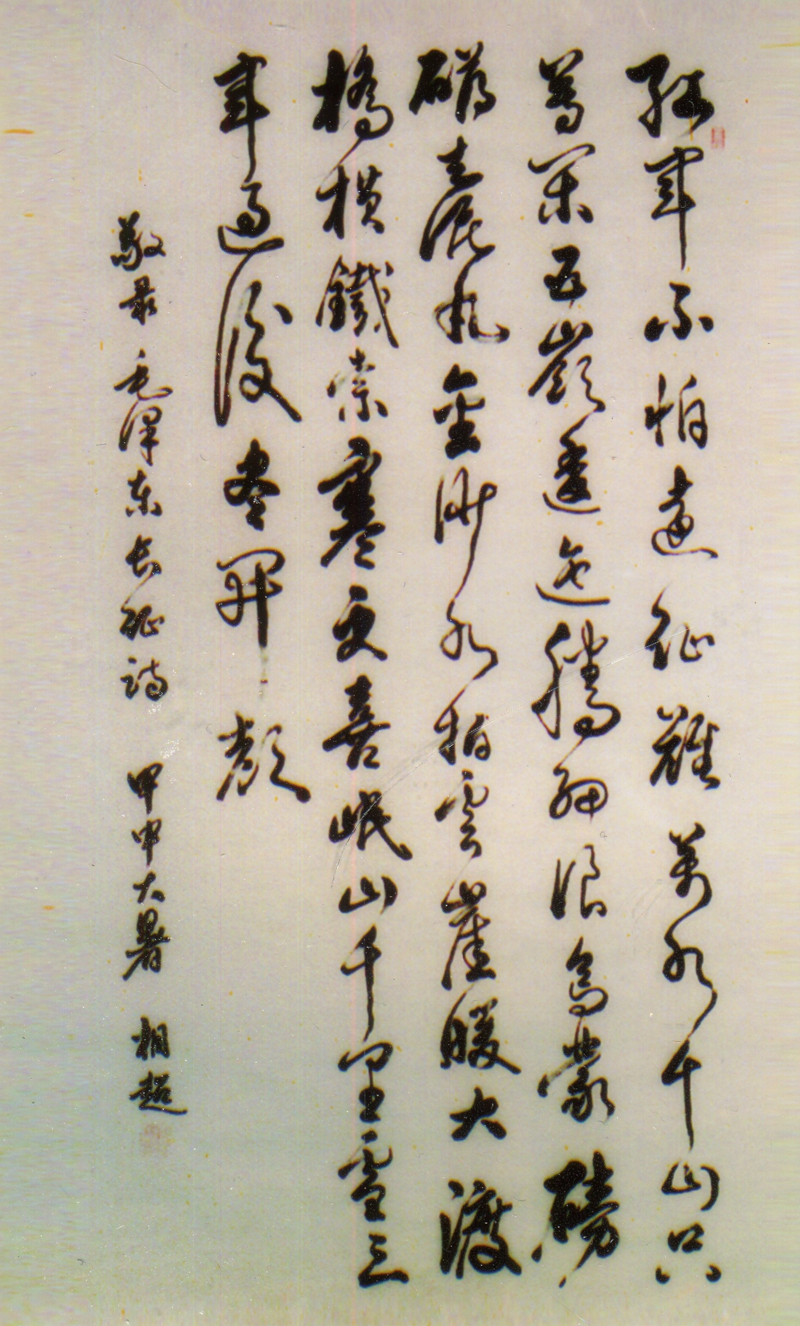 紅軍不怕遠征難萬水千山只
等閑五嶺逶迤騰細浪烏蒙磅
礴走泥丸金沙水拍雲崖暖大渡
橋橫鐵索寒更喜岷山千里雪三
軍過後盡開顏
敬录毛澤东长征詩 甲申大暑 相超